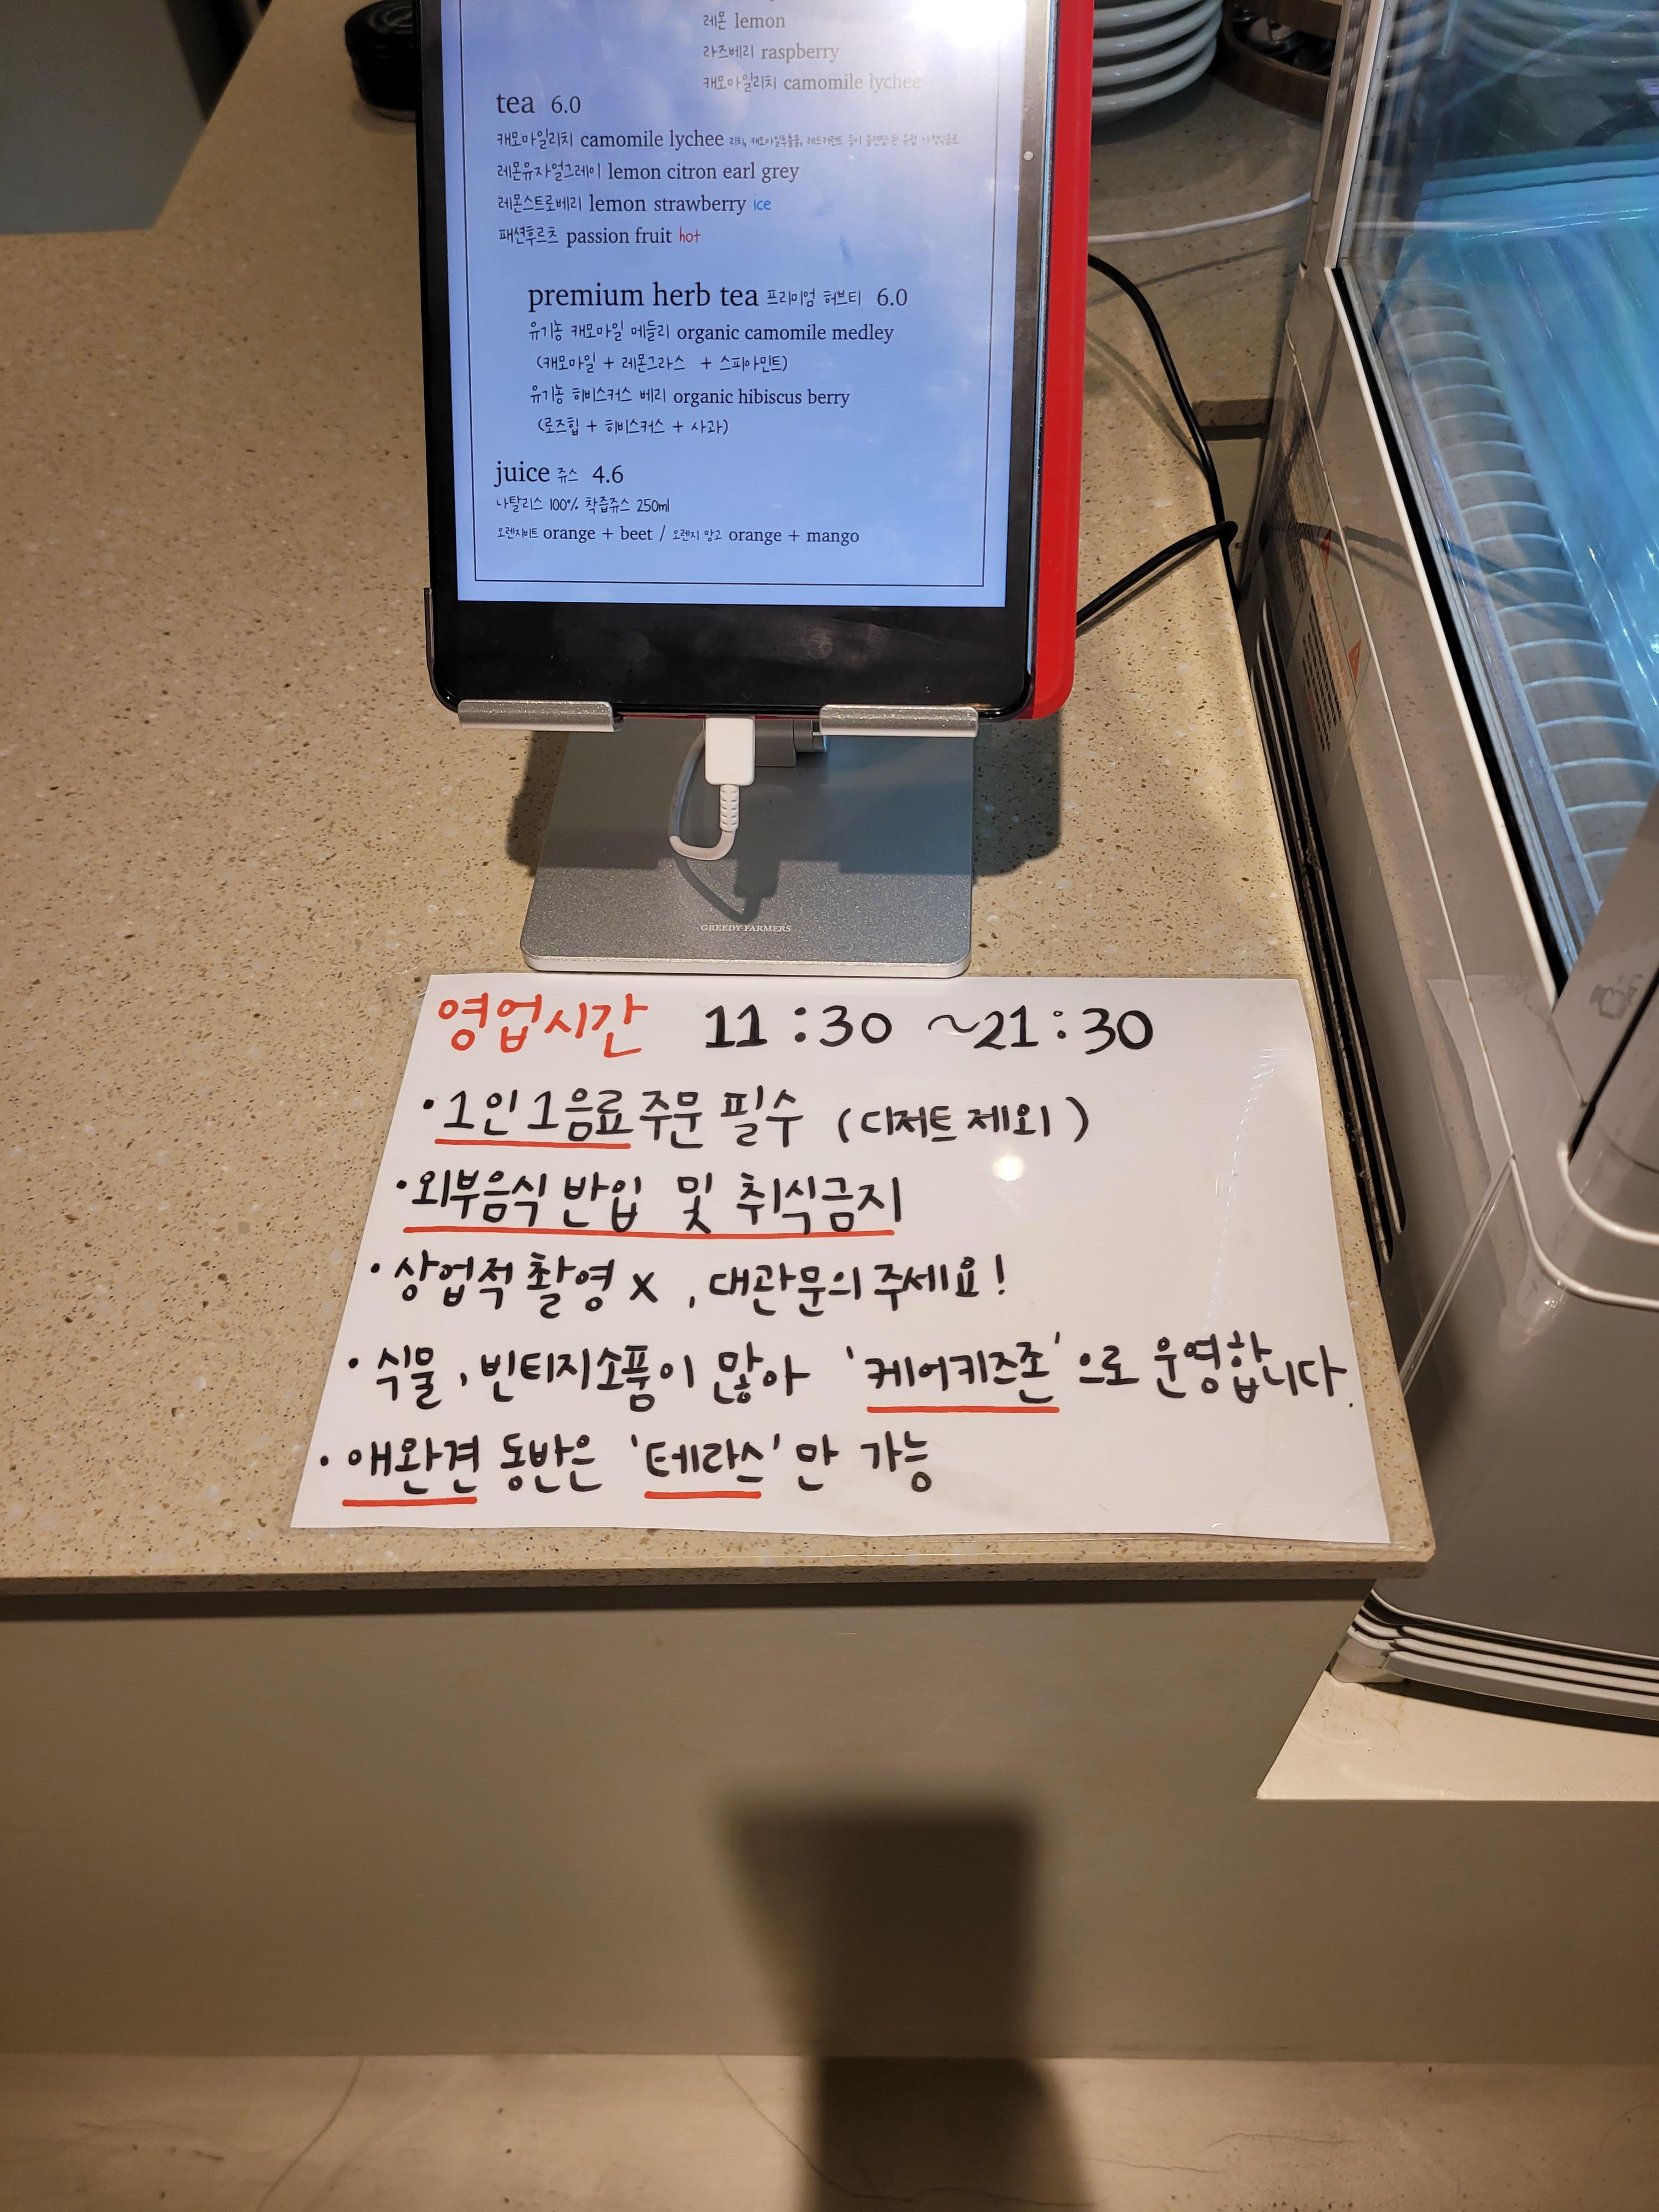 레몬 lemon
라즈베리 raspberry
캐모마일리치 camomile lychee
tea 6.0
캐모마일리치 camomile lychee 리치, 캐모마일추출물, 레드커런트 등이 블렌딩 된 유럽
레몬유자얼그레이 lemon citron earl grey
레몬스트로베리 lemon strawberry ice
패션후르츠 passion fruit hot
premium herb tea 프리미엄 허브티 6.0
유기농 캐모마일 메들리 organic camomile medley
(캐모마일 + 레몬그라스 + 스피아민트)
유기농 히비스커스 베리 organic hibiscus berry
(로즈힙 + 히비스커스 + 사과)
juice 쥬스 4.6
나탈리스 100% 착즙쥬스 250ml
오렌지비트 orange + beet / 오렌지 망고 orange + mango
GREEDY FARMERS
영업시간 11:30 ~21:30
· 1인 1음료 주문 필수 (디저트 제외)
· 외부음식 반입 및 취식금지
· 상업적 촬영 x , 대관문의 주세요!
· 식물, 빈티지소품이 많아 '케어키즈존'으로 운영합니다.
· 애완견 동반은 '테라스'만 가능